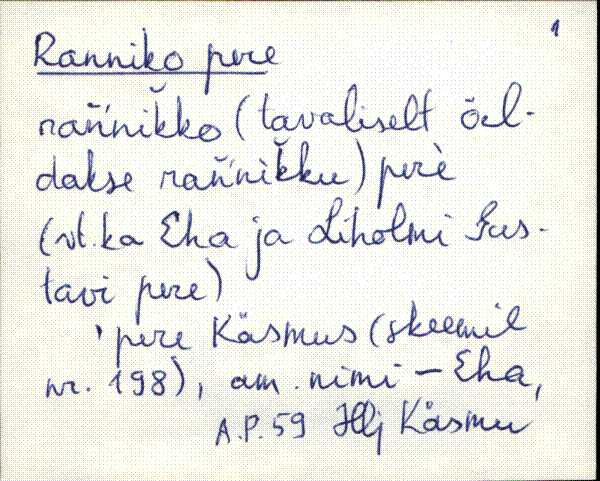 1
Ranniko pere
rañ'nik̆ko (tavaliselt öel-
dakse rañ'nik̆ku) perè
(vt. ka Eha ja Liholmi Gus-
tavi pere)
'pere Käsmus (skeemil
nr. 198), am. nimi – Eha,
A.P. 59 Hlj Käsmu